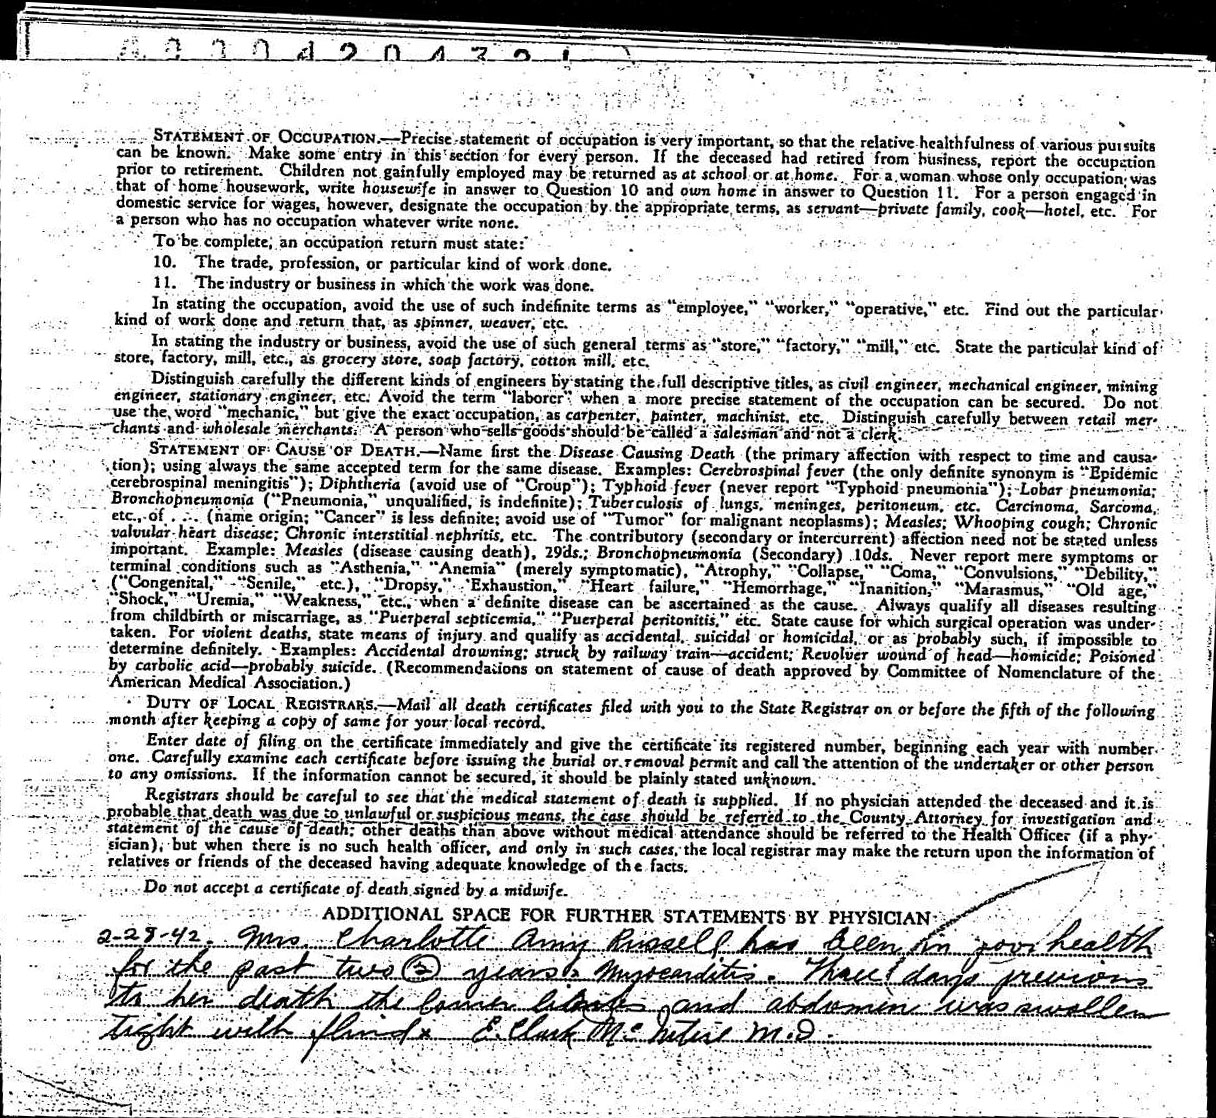 STATEMENT OF OCCUPATION.—Precise statement of occupation is very important, so that the relative healthfulness of various pursuits
can be known. Make some entry in this section for every person. If the deceased had retired from business, report the occupation
prior to retirement. Children not gainfully employed may be returned as at school or at home. For a woman whose only occupation was
that of home housework, write housewife in answer to Question 10 and own home in answer to Question 11. For a person engaged in
domestic service for wages, however, designate the occupation by the appropriate terms, as servant—private family, cook—hotel, etc. For
a person who has no occupation whatever write none.
To be complete, an occupation return must state:
10. The trade, profession, or particular kind of work done.
11. The industry or business in which the work was done.
In stating the occupation, avoid the use of such indefinite terms as "employee," "worker," "operative," etc. Find out the particular
kind of work done and return that, as spinner, weaver, etc.
In stating the industry or business, avoid the use of such general terms as "store," "factory," "mill," etc. State the particular kind of
store, factory, mill, etc., as grocery store, soap factory, cotton mill, etc.
Distinguish carefully the different kinds of engineers by stating the full descriptive titles, as civil engineer, mechanical engineer, mining
engineer, stationary engineer, etc. Avoid the term "laborer" when a more precise statement of the occupation can be secured. Do not
use the word "mechanic," but give the exact occupation, as carpenter, painter, machinist, etc. Distinguish carefully between retail mer-
chants and wholesale merchants. A person who sells goods should be called a salesman and not a clerk.
STATEMENT OF CAUSE OF DEATH.—Name first the Disease Causing Death (the primary affection with respect to time and causa-
tion); using always the same accepted term for the same disease. Examples: Cerebrospinal fever (the only definite synonym is "Epidemic
cerebrospinal meningitis"); Diphtheria (avoid use of "Croup"); Typhoid fever (never report "Typhoid pneumonia"); Lobar pneumonia;
Bronchopneumonia ("Pneumonia," unqualified, is indefinite); Tuberculosis of lungs, meninges, peritoneum, etc. Carcinoma, Sarcoma,
etc., of . . . (name origin; "Cancer" is less definite; avoid use of "Tumor" for malignant neoplasms); Measles; Whooping cough; Chronic
valvular heart disease; Chronic interstitial nephritis, etc. The contributory (secondary or intercurrent) affection need not be stated unless
important. Example: Measles (disease causing death), 29ds.; Bronchopneumonia (Secondary) 10ds. Never report mere symptoms or
terminal conditions such as "Asthenia," "Anemia" (merely symptomatic), "Atrophy," "Collapse," "Coma," "Convulsions," "Debility,"
("Congenital," "Senile," etc.), "Dropsy," "Exhaustion," "Heart failure," "Hemorrhage," "Inanition," "Marasmus," "Old age,"
"Shock," "Uremia," "Weakness," etc., when a definite disease can be ascertained as the cause. Always qualify all diseases resulting
from childbirth or miscarriage, as "Puerperal septicemia," "Puerperal peritonitis," etc. State cause for which surgical operation was under-
taken. For violent deaths, state means of injury and qualify as accidental, suicidal or homicidal, or as probably such, if impossible to
determine definitely. Examples: Accidental drowning; struck by railway train—accident; Revolver wound of head—homicide; Poisoned
by carbolic acid—probably suicide. (Recommendations on statement of cause of death approved by Committee of Nomenclature of the
American Medical Association.)
DUTY OF LOCAL REGISTRARS.—Mail all death certificates filed with you to the State Registrar on or before the fifth of the following
month after keeping a copy of same for your local record.
Enter date of filing on the certificate immediately and give the certificate its registered number, beginning each year with number
one. Carefully examine each certificate before issuing the burial or removal permit and call the attention of the undertaker or other person
to any omissions. If the information cannot be secured, it should be plainly stated unknown.
Registrars should be careful to see that the medical statement of death is supplied. If no physician attended the deceased and it is
probable that death was due to unlawful or suspicious means, the case should be referred to the County Attorney for investigation and
statement of the cause of death; other deaths than above without medical attendance should be referred to the Health Officer (if a phy-
sician), but when there is no such health officer, and only in such cases, the local registrar may make the return upon the information of
relatives or friends of the deceased having adequate knowledge of the facts.
Do not accept a certificate of death signed by a midwife.
ADDITIONAL SPACE FOR FURTHER STATEMENTS BY PHYSICIAN
2-28-42. Mrs. Charlotte Amy Russell has been in poor health
for the past two (2) years. Myocarditis. Three days previous
to her death the lower limbs and abdomen was swollen
tight with fluid. E. Clark McIntire M.D.